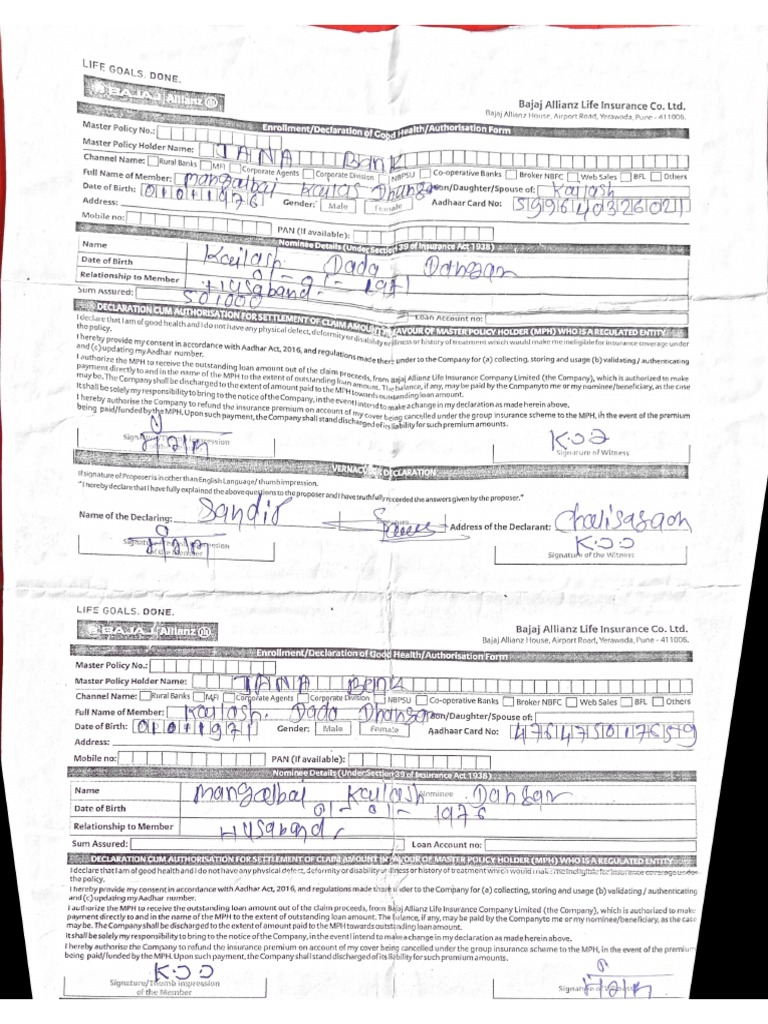 LIFE GOALS. DONE.
BAJAJ Allianz
Bajaj Allianz Life Insurance Co. Ltd.
Bajaj Allianz House, Airport Road, Yerawada, Pune - 411006.
Enrollment/Declaration of Good Health/Authorisation Form
Master Policy No.:
Master Policy Holder Name: JANA Bank
Channel Name: Rural Banks MFI Corporate Agents Corporate Division NBPSU Co-operative Banks Broker NBFC Web Sales BFL Others
Full Name of Member: Mangalbai Kailas Dhangar Son/Daughter/Spouse of: Kailash
Date of Birth: 01011976 Gender: Male Female Aadhaar Card No: 599640326021
Address:
Mobile no: PAN (If available):
Nominee Details (Under Section 39 of Insurance Act 1938)
Name Kailash Dada Dahgar
Date of Birth 01-01-1971
Relationship to Member Husaband.
Sum Assured: 501000 Loan Account no:
DECLARATION CUM AUTHORISATION FOR SETTLEMENT OF CLAIM AMOUNT FAVOUR OF MASTER POLICY HOLDER (MPH) WHO IS A REGULATED ENTITY
I declare that I am of good health and I do not have any physical defect, deformity or disability or illness or history of treatment which would make me ineligible for insurance coverage under
the policy.
I hereby provide my consent in accordance with Aadhar Act, 2016, and regulations made thereunder to the Company for (a) collecting, storing and usage (b) validating / authenticating
and (c) updating my Aadhar number.
I authorize the MPH to receive the outstanding loan amount out of the claim proceeds, from Bajaj Allianz Life Insurance Company Limited (the Company), which is authorized to make
payment directly to and in the name of the MPH to the extent of outstanding loan amount. The balance, if any, may be paid by the Company to me or my nominee/beneficiary, as the case
may be. The Company shall be discharged to the extent of amount paid to the MPH towards outstanding loan amount.
It shall be solely my responsibility to bring to the notice of the Company, in the event I intend to make a change in my declaration as made herein above.
I hereby authorise the Company to refund the insurance premium on account of my cover being cancelled under the group insurance scheme to the MPH, in the event of the premium
being paid/funded by the MPH. Upon such payment, the Company shall stand discharged of its liability for such premium amounts.
Signature of Witness
VERNACULAR DECLARATION
If signature of Proposer is in other than English Language/ thumb impression.
"I hereby declare that I have fully explained the above questions to the proposer and I have truthfully recorded the answers given by the proposer."
Name of the Declaring: Sandip Address of the Declarant: Chalisagaon
of the Member
Signature of the Witness
LIFE GOALS. DONE.
BAJAJ Allianz
Bajaj Allianz Life Insurance Co. Ltd.
Bajaj Allianz House, Airport Road, Yerawada, Pune - 411006.
Enrollment/Declaration of Good Health/Authorisation Form
Master Policy No.:
Master Policy Holder Name: JANA Bank
Channel Name: Rural Banks MFI Corporate Agents Corporate Division NBPSU Co-operative Banks Broker NBFC Web Sales BFL Others
Full Name of Member: Kailash. Dada Dhangar Son/Daughter/Spouse of:
Date of Birth: 01011971 Gender: Male Female Aadhaar Card No:
Address:
Mobile no: PAN (If available):
Nominee Details (Under Section 39 of Insurance Act 1938)
Name Mangalbai Kailash Nominee Dahgar
Date of Birth 01-01-1976
Relationship to Member Husaband,
Sum Assured: Loan Account no:
DECLARATION CUM AUTHORISATION FOR SETTLEMENT OF CLAIM AMOUNT IN FAVOUR OF MASTER POLICY HOLDER (MPH) WHO IS A REGULATED ENTITY
I declare that I am of good health and I do not have any physical defect, deformity or disability or illness or history of treatment which would make me ineligible for insurance coverage under
the policy.
I hereby provide my consent in accordance with Aadhar Act, 2016, and regulations made thereunder to the Company for (a) collecting, storing and usage (b) validating / authenticating
and (c) updating my Aadhar number.
I authorize the MPH to receive the outstanding loan amount out of the claim proceeds, from Bajaj Allianz Life Insurance Company Limited (the Company), which is authorized to make
payment directly to and in the name of the MPH to the extent of outstanding loan amount. The balance, if any, may be paid by the Company to me or my nominee/beneficiary, as the case
may be. The Company shall be discharged to the extent of amount paid to the MPH towards outstanding loan amount.
It shall be solely my responsibility to bring to the notice of the Company, in the event I intend to make a change in my declaration as made herein above.
I hereby authorise the Company to refund the insurance premium on account of my cover being cancelled under the group insurance scheme to the MPH, in the event of the premium
being paid/funded by the MPH. Upon such payment, the Company shall stand discharged of its liability for such premium amounts.
Signature/Thumb impression
of the Member